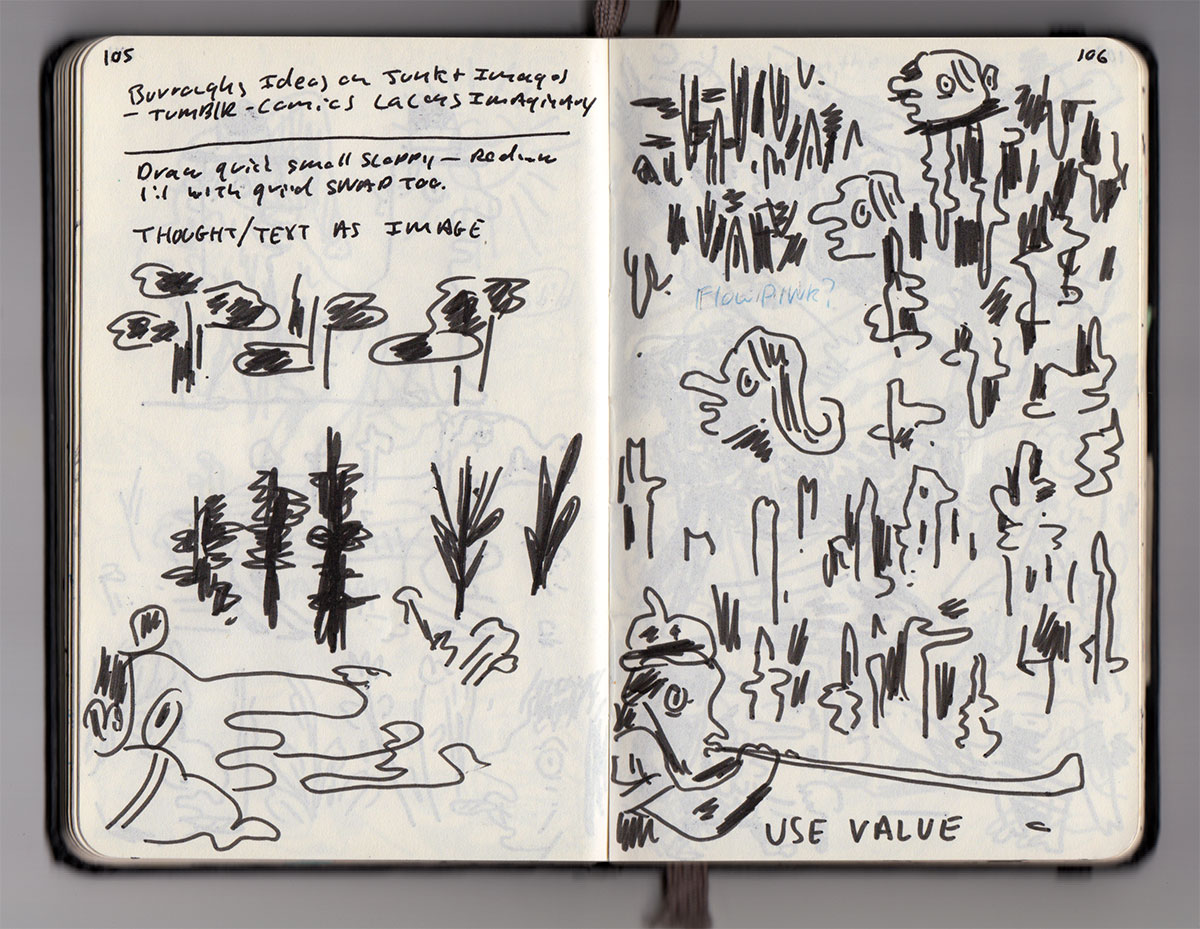 105
Burroughs Ideas on Junk + Images
- TUMBLR - Comics Lacans Imaginary
Draw quick small sloppy -
1:1 with quick SNAP TOO.
THOUGHT/TEXT AS IMAGE
106
USE VALUE